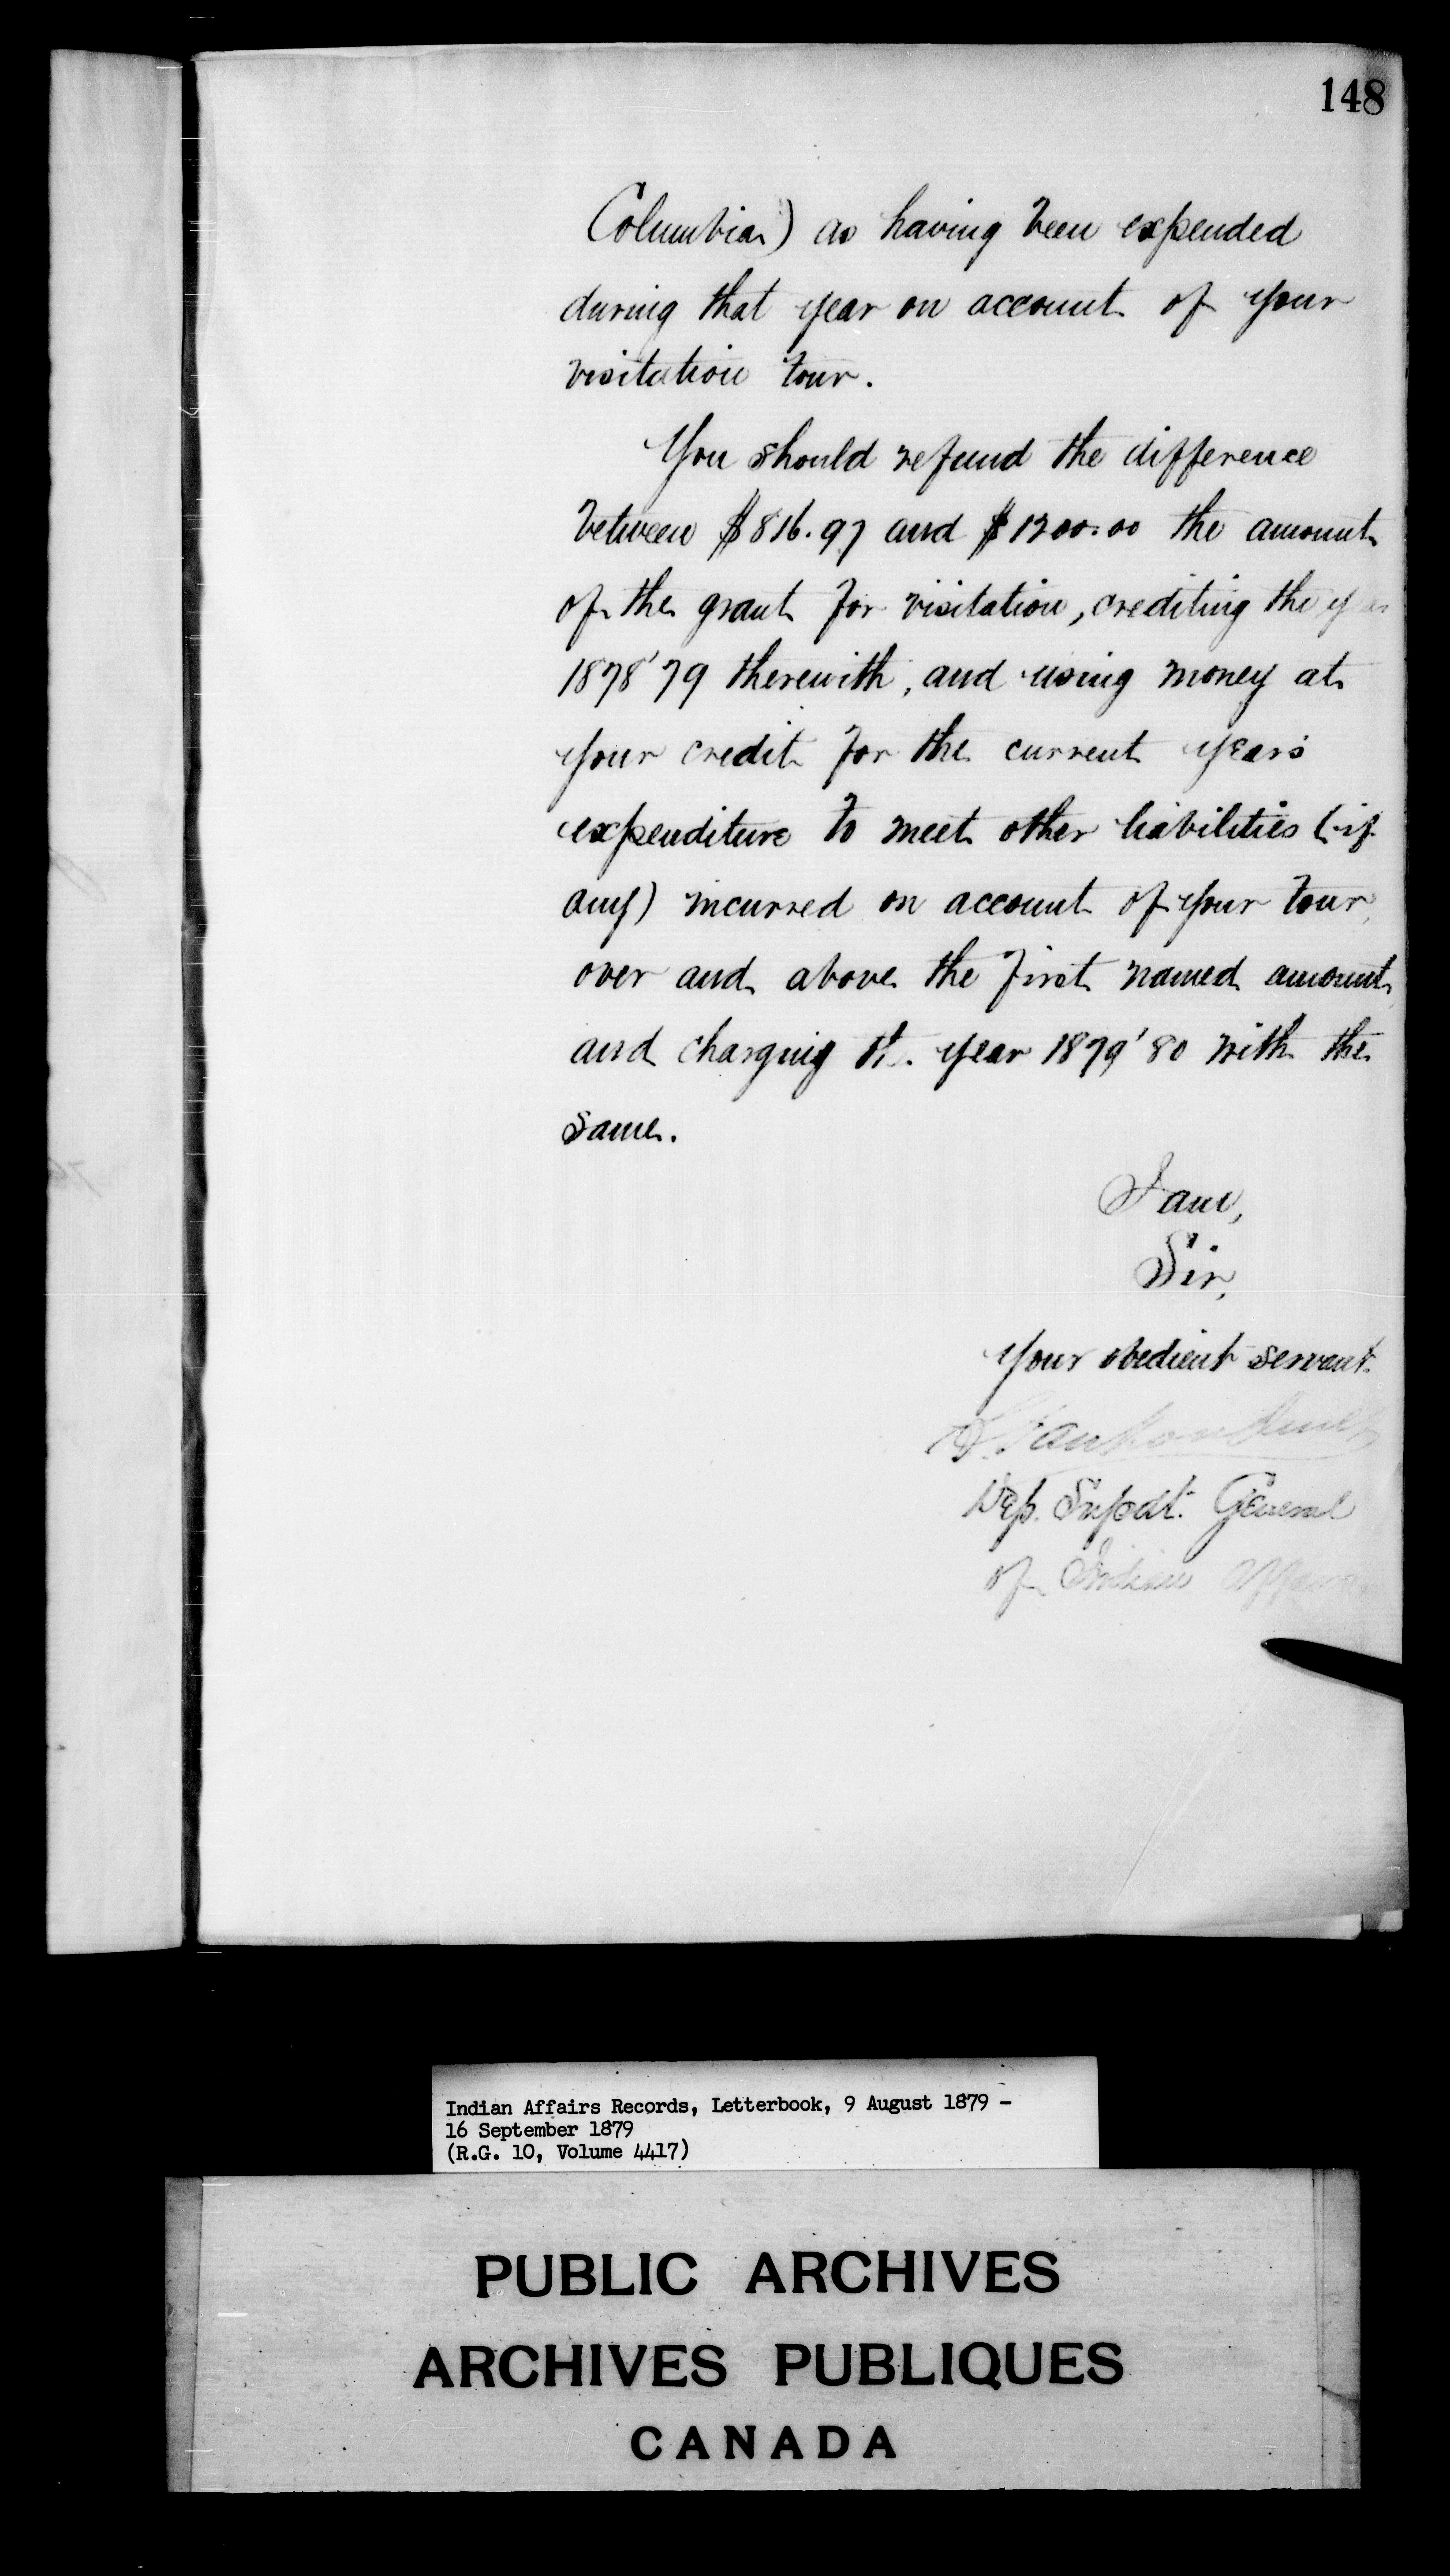 148
Columbia) as having been expended
during that year on account of your
visitation tour.
You should refund the difference
between $816.97 and $1200.00 the amount
of the grant for visitation, crediting the year
1878'79 therewith, and using money at
your credit for the current years
expenditure to meet other liabilities (if
any) incurred on account of your tour,
over and above the first named amount,
and charging the year 1879'80 with the
same.
I am,
Sir,
Your obedient servant.
Dep. Supdt. General
of Indian Affairs
Indian Affairs Records, Letterbook, 9 August 1879 -
16 September 1879
(R.G. 10, Volume 4417)
PUBLIC ARCHIVES
ARCHIVES PUBLIQUES
CANADA